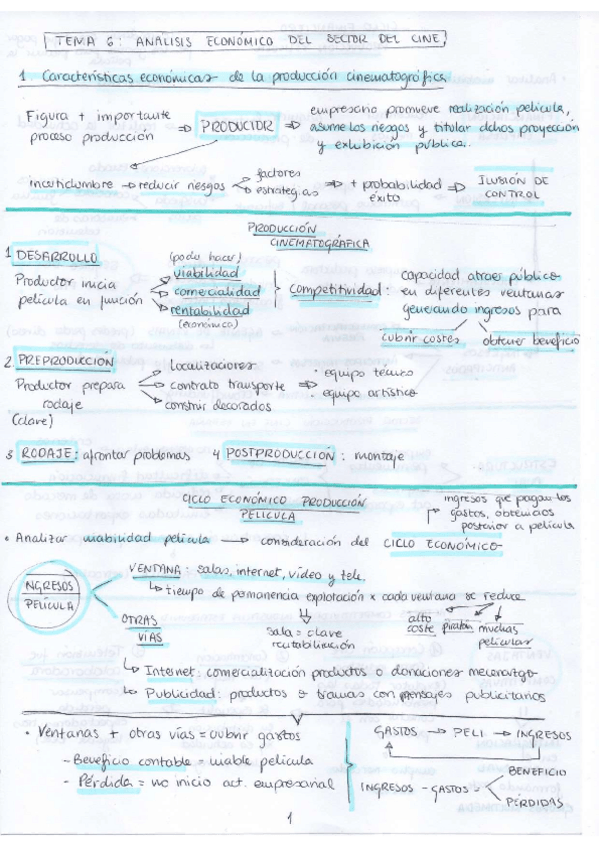 TEMA 6: ANÁLISIS ECONÓMICO DEL SECTOR DEL CINE
1 Características económicas de la producción cinematográfica
Figura + importante
proceso producción
⇒ PRODUCTOR ⇒
empresario promueve realización película,
asume los riesgos y titular dchos proyección
y exhibición pública.
incertidumbre → reducir riesgos
factores
estrategias
⇒ + probabilidad
éxito
⇒ ILUSIÓN DE
CONTROL
PRODUCCIÓN
CINEMATOGRÁFICA
1 DESARROLLO
Productor inicia
película en función
(poder hacer)
viabilidad
comercialidad
rentabilidad
(económica)
Competitividad:
capacidad atraer público
en diferentes ventanas
generando ingresos para
cubrir costes
obtener beneficio
2. PREPRODUCCIÓN
Productor prepara
rodaje
(clave)
localizaciones
contrato transporte
construir decorados
⇒
· equipo técnico
· equipo artístico
3 RODAJE: afrontar problemas 4 POSTPRODUCCIÓN: montaje
CICLO ECONÓMICO PRODUCCIÓN
PELICULA
ingresos que pagan los
gastos, obtenidos
posterior a película
• Analizar viabilidad película → consideración del CICLO ECONÓMICO
INGRESOS
PELÍCULA
VENTANA: salas, internet, vídeo y tele.
↳ tiempo de permanencia explotación x cada ventana se reduce
alto
coste
piratería
muchas
películas
sala = clave
rentabilización
OTRAS
VÍAS
↳ Internet: comercialización productos o donaciones
↳ Publicidad: productos & tramas con mensajes publicitarios
• Ventanas + otras vías = cubrir gastos
- Beneficio contable = viable película
- Pérdida = no inicio act. empresarial
GASTOS → PELI → INGRESOS
INGRESOS - GASTOS =
BENEFICIO
PÉRDIDAS
1